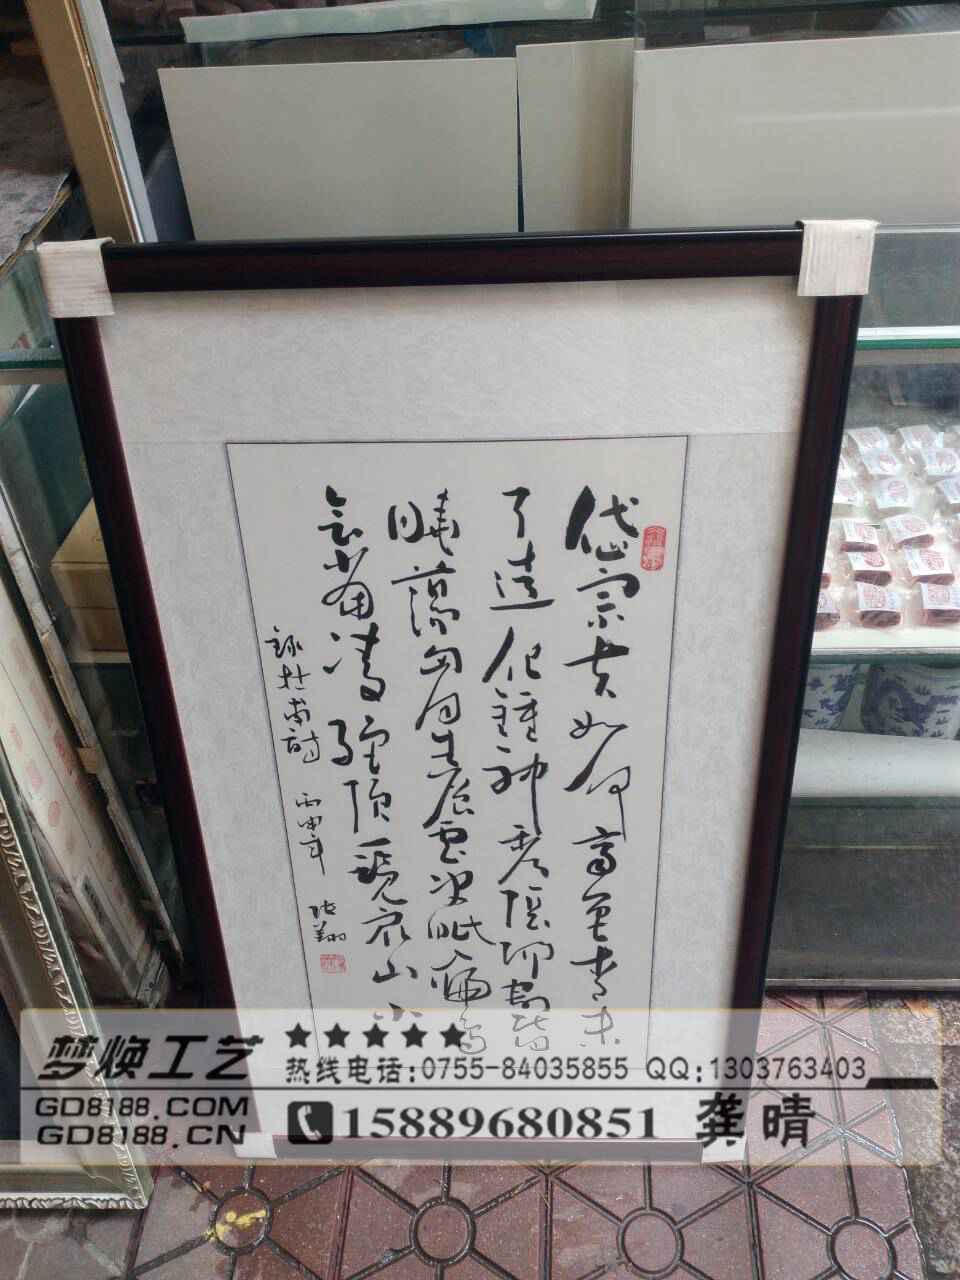 岱宗夫如何齊魯青未
了造化鍾神秀陰陽割昏
曉蕩胸生层雲決眦入歸鳥
會當凌絕頂一覽眾山小
録杜甫詩 丙申年 张翔
梦焕工艺
GD8188.COM
GD8188.CN
★★★★★
热线电话:0755-84035855 QQ:1303763403
15889680851 龚晴